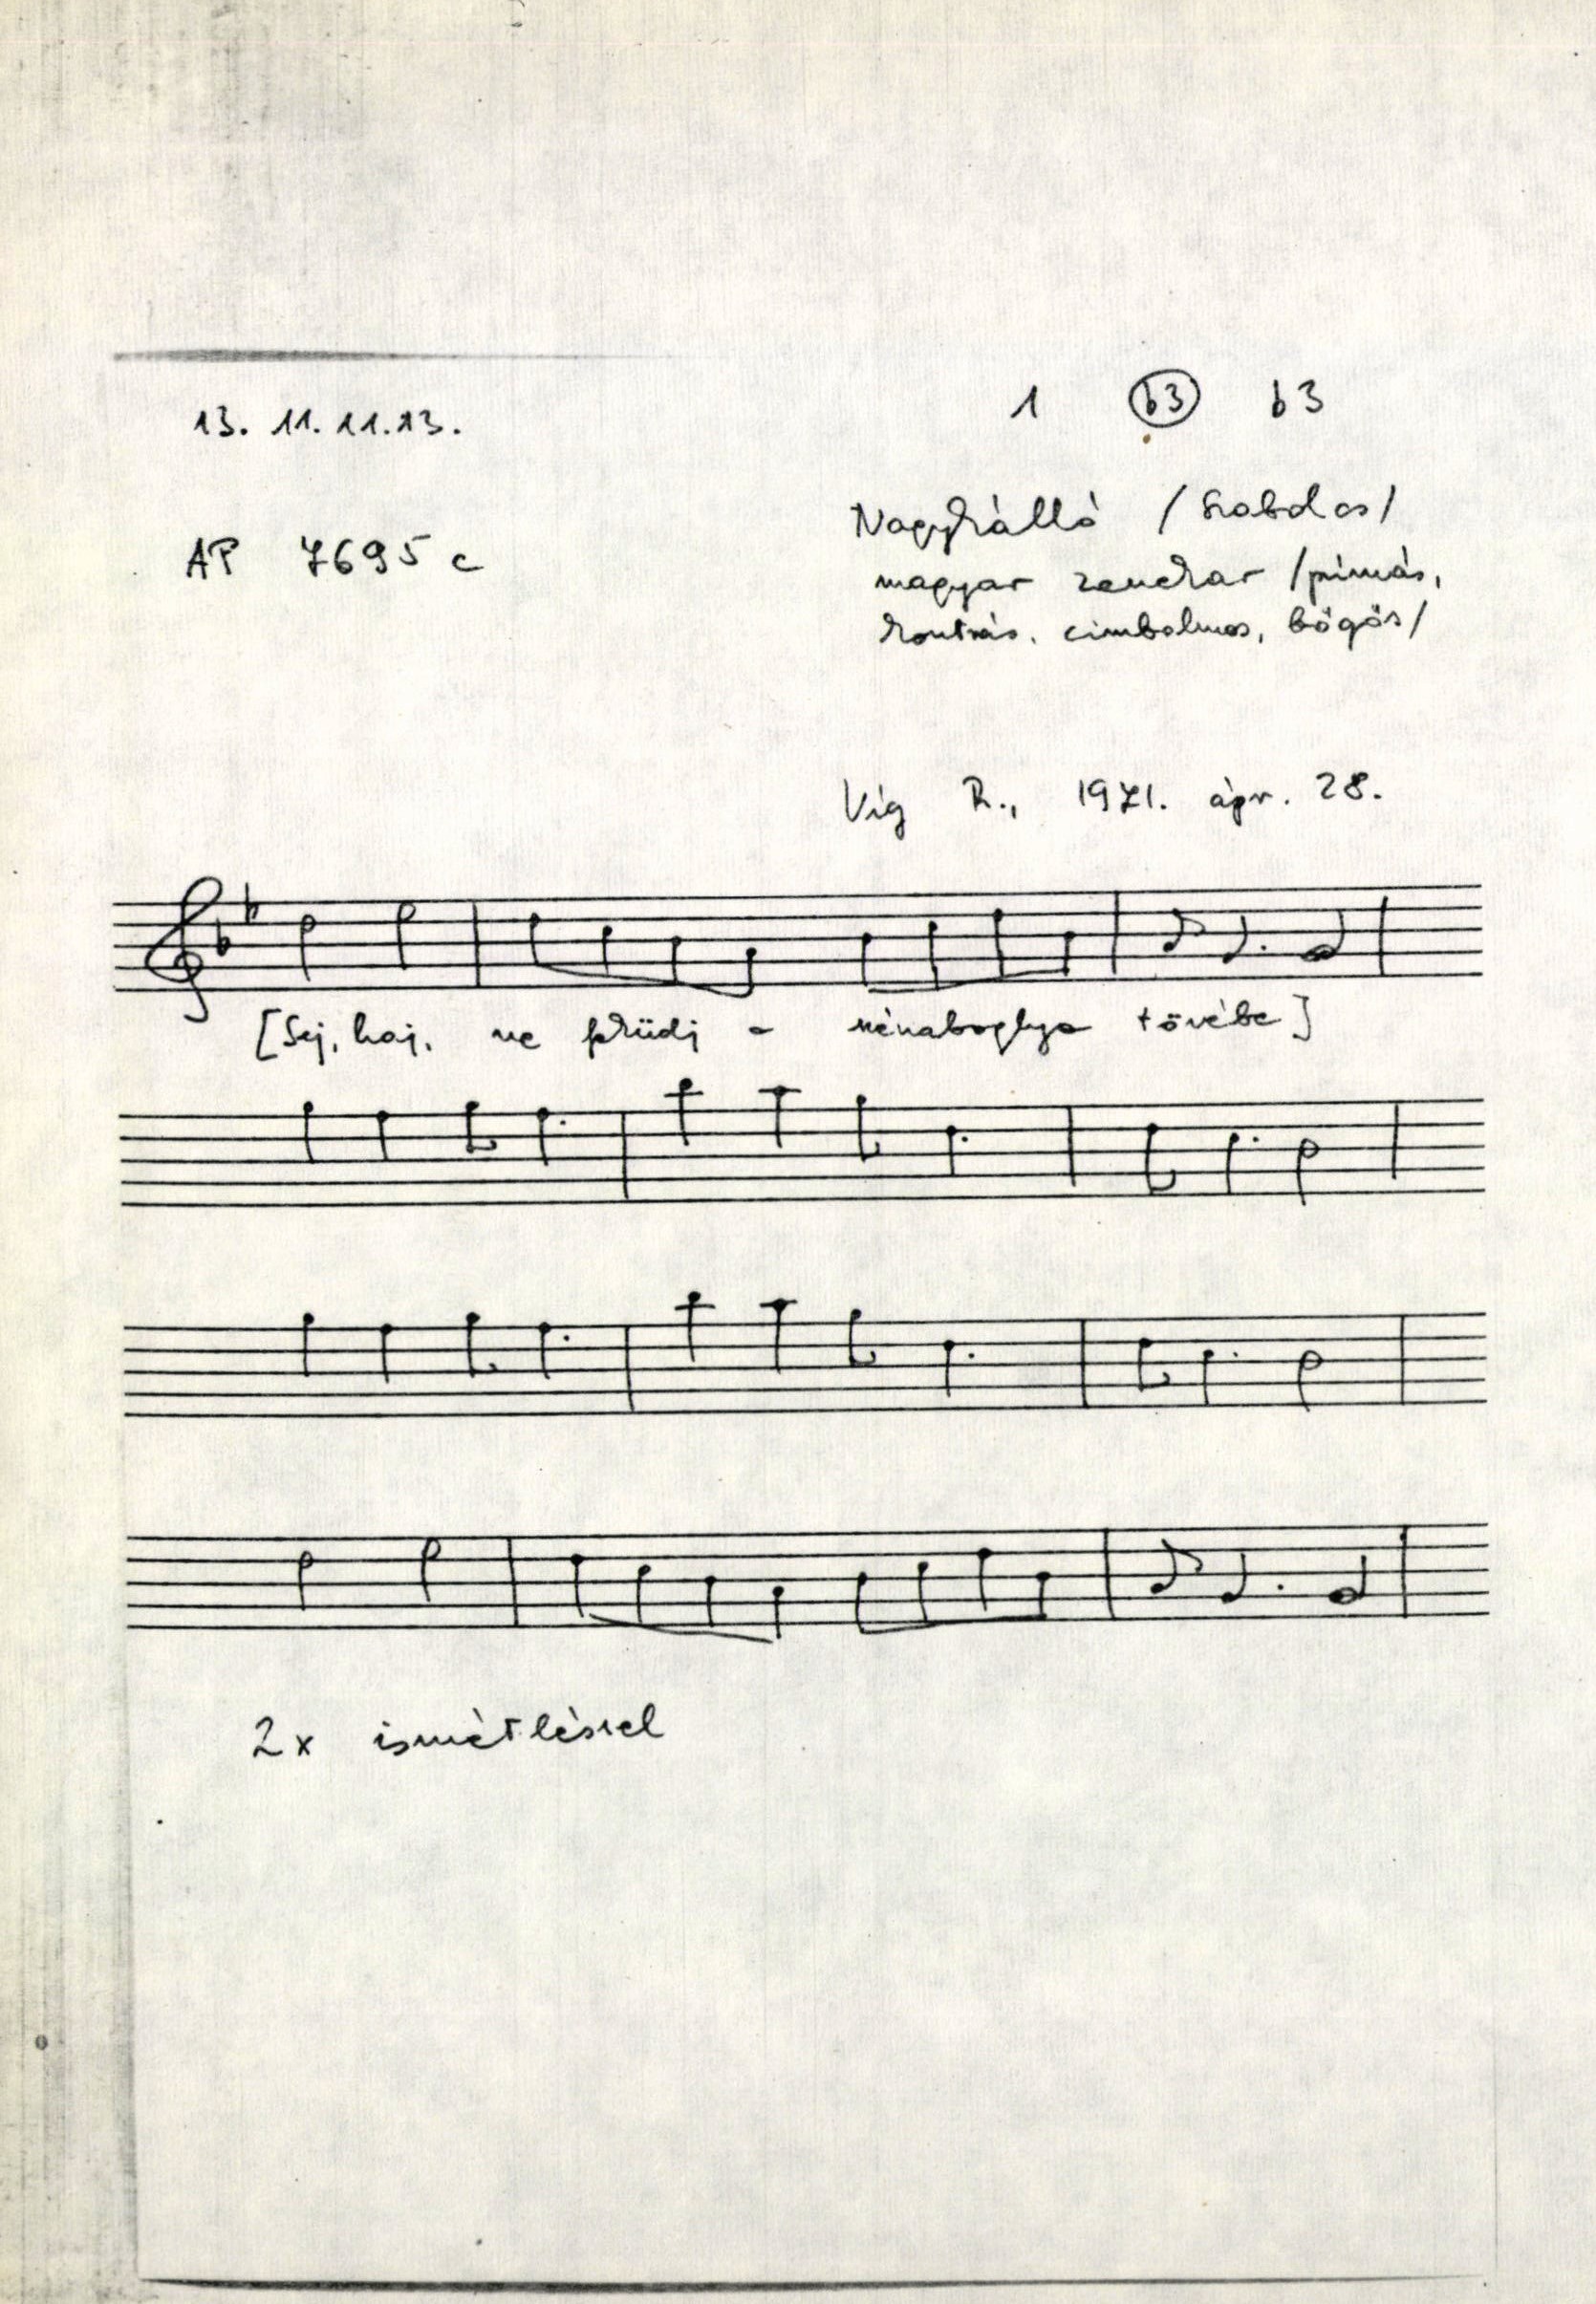 13. 11. 11. 13.
1 b3 b3
AP 7695 c
Nagykálló /Szabolcs/
magyar zenekar /prímás,
kontrás, cimbalmos, bőgős/
Víg R., 1971. ápr. 28.
[Sej, haj, ne feküdj a szénaboglya tövébe]
2x ismétléssel